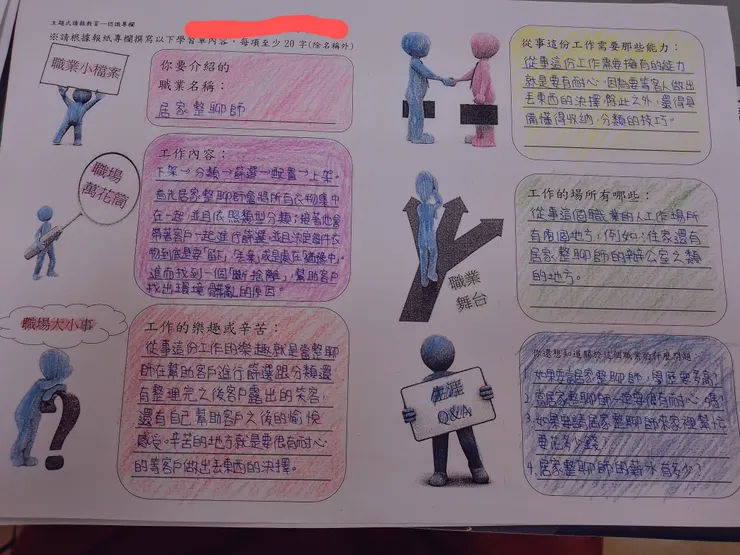 主題式讀報教育—認識專欄
※請根據報紙專欄撰寫以下學習單內容,每項至少20字(除名稱外)
職業小檔案
你要介紹的
職業名稱:
居家整聊師
職場
萬花筒
工作內容:
下架→分類→篩選→配置→上架。
首先居家整聊師會將所有衣物集中
在一起並且依照類型分類;接著他會
帶著客戶一起進行篩選並且決定每件衣
物到底是要「留下」、「丟棄」或是處在「猶豫中」,
進而找到一個「斷捨離」,幫助客戶
找出環境髒亂的原因。
職場大小事
工作的樂趣或辛苦:
從事這份工作的樂趣就是當整聊
師在幫助客戶進行篩選跟分類還
有整理完之後客戶露出的笑容,
還有自己幫助客戶之後的愉悅
感受。辛苦的地方就是要很有耐心
的等客戶做出丟東西的決擇。
從事這份工作需要那些能力:
從事這份工作需要擁有的能力
就是要有耐心,因為要等客人做出
丟東西的決擇,除此之外,還得具
備懂得收納,分類的技巧。
職業
舞台
工作的場所有哪些:
從事這個職業的人工作場所
有兩個地方,例如:住家還有
居家整聊師的辦公室之類
的地方。
生涯
Q&A
你還想知道關於這個職業的什麼問題:
1.如果要當居家整聊師,學歷要多高?
2.當居家整聊師一定要很有耐心嗎?
3.如果要請居家整聊師來家裡幫忙
要花多少錢?
4.居家整聊師的薪水有多少?